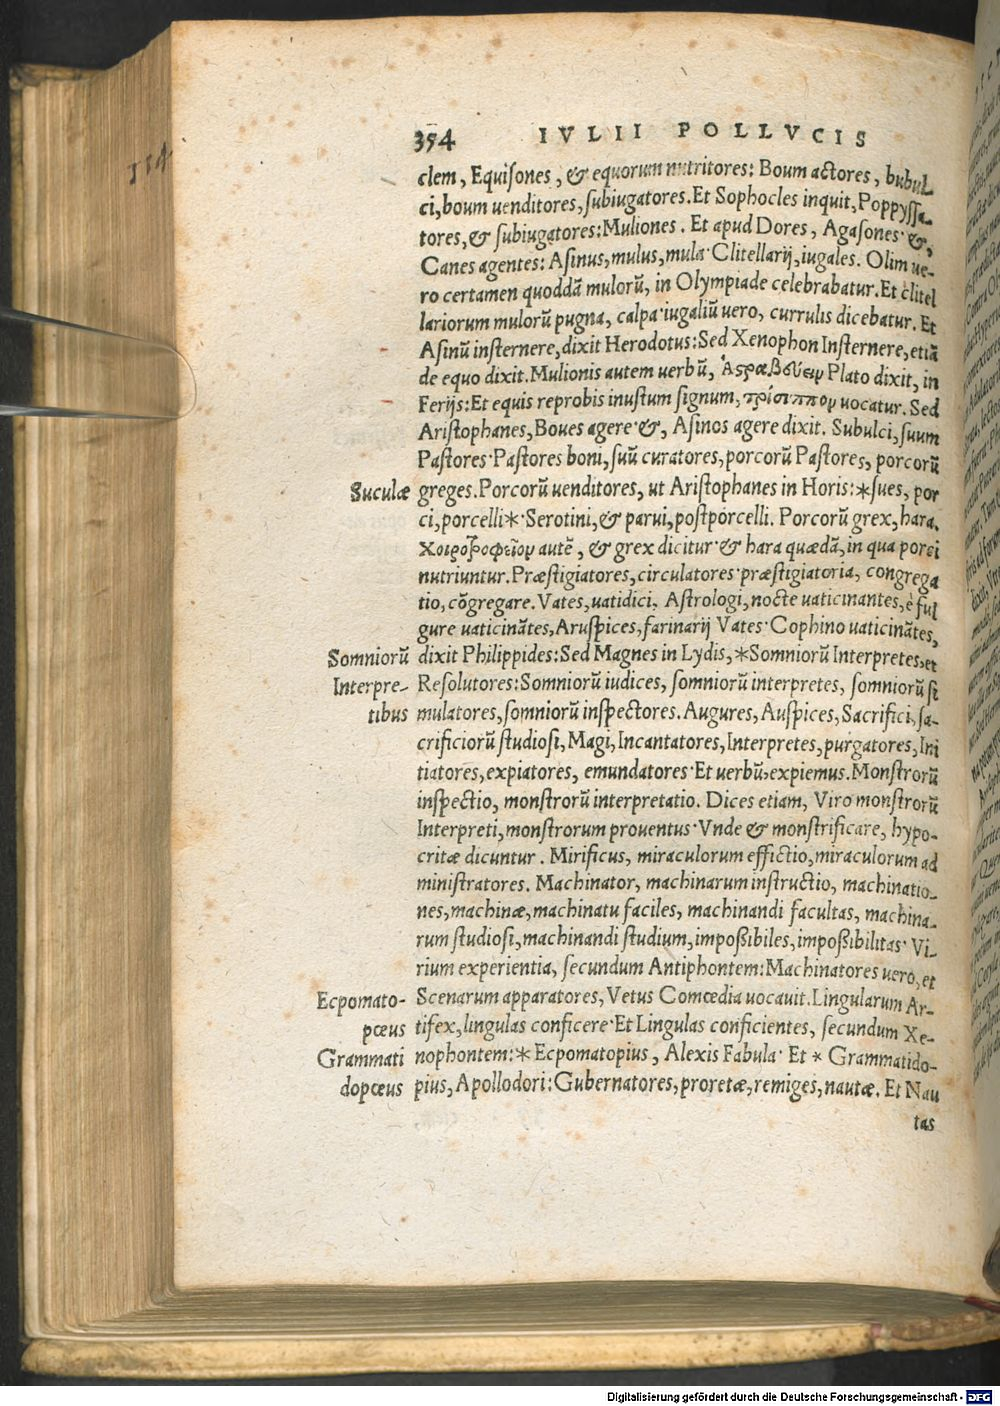 354 IVLII POLLVCIS
clem, Equisones, & equorum nutritores: Boum actores, bubul-
ci, boum uenditores, subiugatores. Et Sophocles inquit, Poppyssa-
tores, & subiugatores: Muliones. Et apud Dores, Agasones· &,
Canes agentes: Asinus, mulus, mula· Clitellarij, iugales. Olim ue-
ro certamen quoddā mulorū, in Olympiade celebrabatur. Et clitel
lariorum mulorū pugna, calpa· iugaliū uero, currulis dicebatur. Et
Asinū insternere, dixit Herodotus: Sed Xenophon Insternere, etiā
de equo dixit. Mulionis autem uerbū, Ἀςραβδύειν Plato dixit, in
Ferijs: Et equis reprobis inustum signum, τρίσιππον uocatur. Sed
Aristophanes, Boues agere· &, Asinos agere dixit. Subulci, suum
Pastores· Pastores boni, suū curatores, porcorū Pastores, porcorū
Suculæ greges. Porcorū uenditores, ut Aristophanes in Horis: *sues, por
ci, porcelli*· Serotini, & parui, postporcelli. Porcorū grex, hara.
χοιροτροφεῖον autē, & grex dicitur· & hara quædā, in qua porci
nutriuntur. Præstigiatores, circulatores· præstigiatoria, congrega
tio, cōgregare. Vates, uatidici, Astrologi, nocte uaticinantes, è ful
gure uaticinātes, Aruspices, farinarij Vates· Cophino uaticinātes,
Somniorū dixit Philippides: Sed Magnes in Lydis, *Somniorū Interpretes, et
Interpre- Resolutores: Somniorū iudices, somniorū interpretes, somniorū si
tibus mulatores, somniorū inspectores. Augures, Auspices, Sacrifici, sa-
crificiorū studiosi, Magi, Incantatores, Interpretes, purgatores, Ini
tiatores, expiatores, emundatores· Et uerbū, expiemus. Monstrorū
inspectio, monstrorū interpretatio. Dices etiam, Viro monstrorū
Interpreti, monstrorum prouentus· Vnde & monstrificare, hypo-
critæ dicuntur. Mirificus, miraculorum effictio, miraculorum ad
ministratores. Machinator, machinarum instructio, machinatio-
nes, machinæ, machinatu faciles, machinandi facultas, machina-
rum studiosi, machinandi studium, impoßibiles, impoßibilitas· Vi-
rium experientia, secundum Antiphontem: Machinatores uero, et
Ecpomato- Scenarum apparatores, Vetus Comœdia uocauit. Lingularum Ar-
pœus tifex, lingulas conficere· Et Lingulas conficientes, secundum Xe-
Grammati nophontem: * Ecpomatopius, Alexis Fabula· Et * Grammatido-
dopœus pius, Apollodori: Gubernatores, proretæ, remiges, nautæ. Et Nau
tas
Digitalisierung gefördert durch die Deutsche Forschungsgemeinschaft - DFG